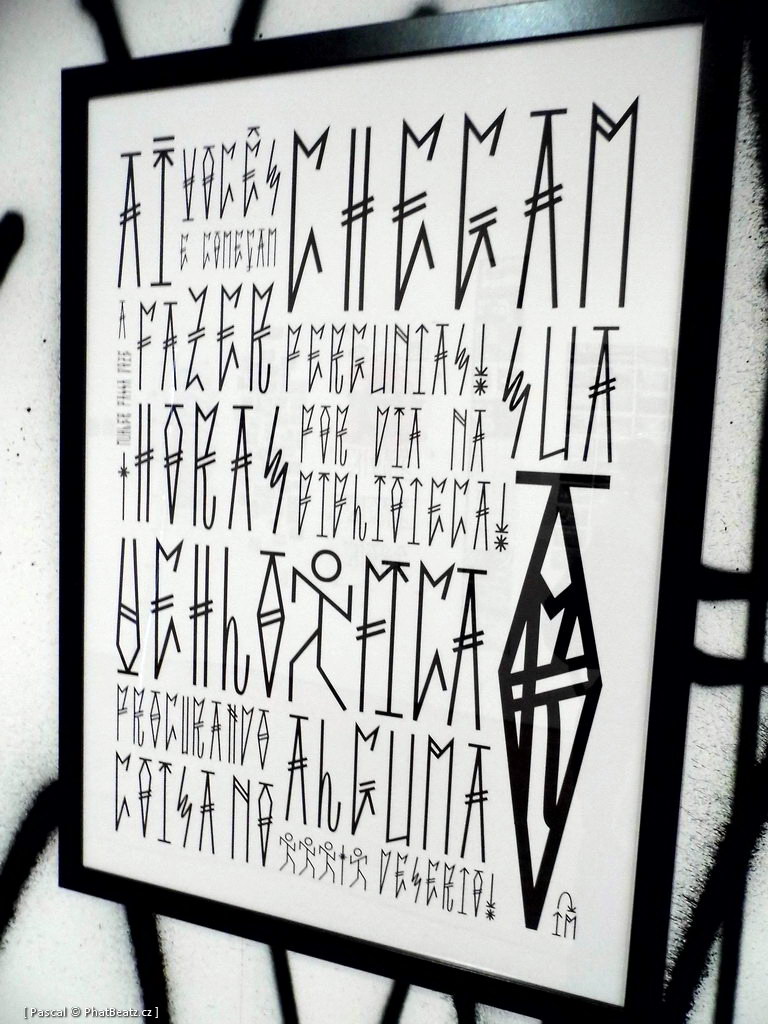 AÍ VOCÊS CHEGAM
E COMEÇAM
A FAZER PERGUNTAS!
SUA
HORAS POR DIA NA
BIBLIOTECA!
VELHO FICA
PROCURANDO ALGUMA
COISA NO
DESERTO!
[ Pascal © PhatBeatz.cz ]